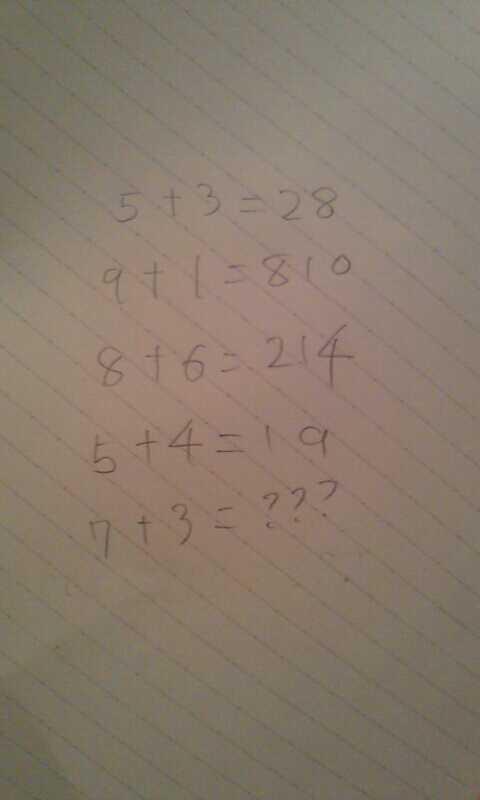 5+3=28
9+1=810
8+6=214
5+4=19
7+3=???